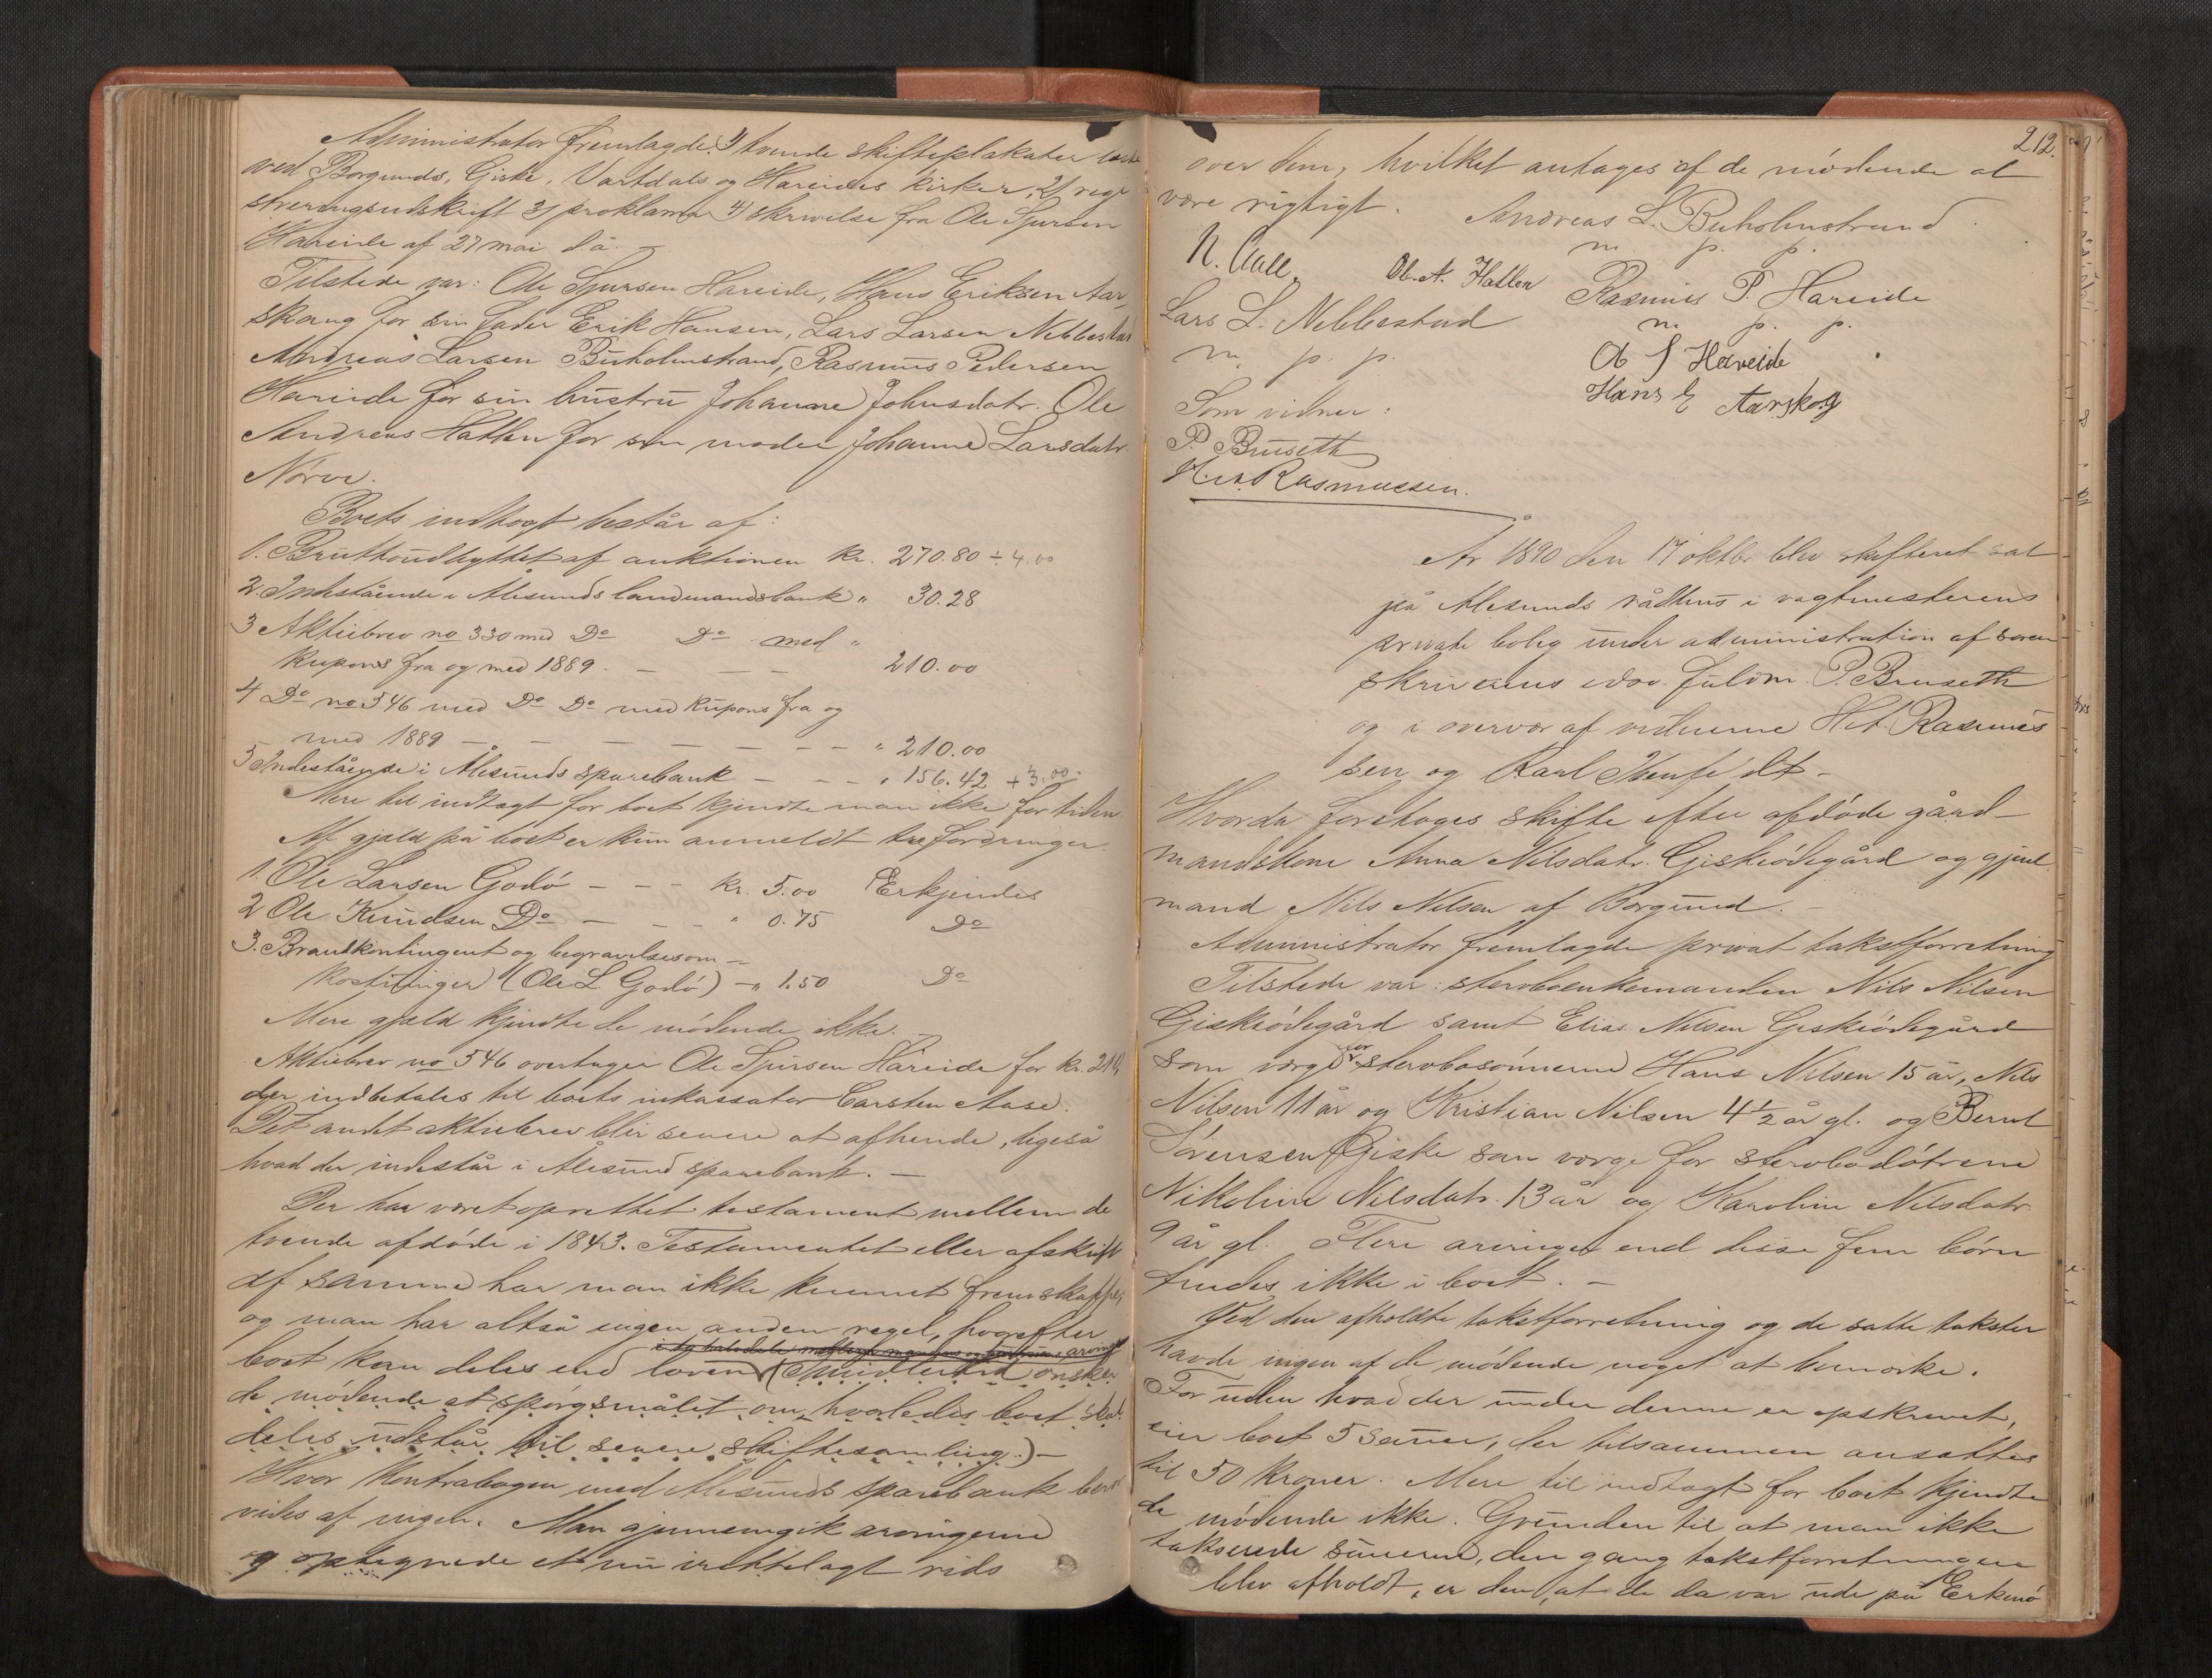 Administrator fremlagde 1) tvende skifteplakater læste
ved Borgunds, Giske, Vartdals og Hareides kirker, 2) regi
streringsudskrift 3) proklama 4) skrivelse fra Ole Sjursen
Hareide af 27 mai då.
Tilstede var: Ole Sjursen Hareide, Hans Eriksen Aar
skaug for sin fader Erik Hansen, Lars Larsen Nebbestad
Andreas Larsen Buholmstrand, Rasmus Pedersen
Hareide for sin hustru Johanne Johnsdatr. Ole
Andreas Hatlen for sin moder Johanne Larsdatr.
Nørve.
Boets indtægt består af:
1. Bruttoudbyttet af auktionen kr. 270.80 ÷ 4.00
2. Indestående i Ålesunds landmandsbank " 30.28
3 Aktiebrev no 330 med Do Do med "
kupons fra og med 1889. — — — 210.00
4 Do no 546 med Do Do med kupons fra og
med 1889 — — — — — — — " 210.00
5 Indestående i Ålesunds sparebank — — — " 156.42 + 3.00.
Mere til indtægt for boet kjendte man ikke for tiden
Af gjæld på boet er kun anmeldt tre fordringer.
1. Ole Larsen Godø — — — kr. 5.00 Erkjendes
2 Ole Knudsen Do — — — " 0.75 Do
3. Brandkontingent og begravelsesom—
kostninger (Ole L Godø) — " 1.50 Do
Mere gjæld kjendte de mødende ikke. —
Aktiebrev no 546 overtager Ole Sjursen Hareide for kr. 210,
der indbetales til boets inkassator Carsten Aase.
Det andet aktiebrev blir senere at afhende, ligeså
hvad der indestår i Ålesund sparebank. —
Der har været oprettet testament mellem de
tvende afdøde i 1843. Testamentet eller afskrift
af samme har man ikke kunnet fremskaffe,
og man har altså ingen anden regel, hvorefter
i to halvdele mellem mandens og arvinger
boet kan deles end loven (Imidlertid ønsker
de mødende at spørgsmålet om, hvorledes boet skal
deles udstår til senere skiftesamling.) —
Hvor kontrabogen med Ålesunds sparebank bero
vides af ingen. Man gjennemgik arvingerne
og optegnede et nu irettelagt rids
212.
over dem, hvilket antages af de mødende at
være rigtigt. Andreas L. Buholmstrand.
m. p. p.
N. Aall. Ol. A. Hatlen Rasmus P. Hareide
Lars L. Nebbestad m. p. p.
m. p. p. O S Hareide
Hans E Aarskog
Som vidner:
P. Bruseth
H. A. Rasmussen.
År 1890 den 17 oktbr. blev skifteret sat
på Ålesunds rådhus i vagtmesterens
private bolig under administration af soren
skriverens edsv. fuldm. P. Bruseth
og i overvær af vidnerne H. A. Rasmus
sen og Karl
Hvorda foretoges skifte efter afdøde gård—
mandskone Anna Nilsdatr. Giskeødegård og gjenl.
mand Nils Nilsen af Borgund. —
Administrator fremlagde privat takstforretning
Tilstede var: stervboenkemanden Nils Nilsen
Giskeødegård samt Elias Nilsen Giskeødegård
som værge for stervbosønnerne Hans Nilsen 15 år, Nils
Nilsen 11 år og Kristian Nilsen 4½ år gl. og Bernt
Sørensen Giske som værge for stervbodøtrene
Nikoline Nilsdatr. 13 år og Karoline Nilsdatr.
9 år gl. Flere arvinger end disse fem børn
findes ikke i boet. —
Ved den afholdte takstforretning og de satte takster
havde ingen af de mødende noget at bemærke.
For uden hvad der under denne er opskrevet,
eier boet 5 sauer, der tilsammen ansattes
til 50 kroner. Mere til indtægt for boet kjendte
de mødende ikke. Grunden til at man ikke
takserede sauerne, den gang takstforretningen
blev afholdt, er den, at de da var ude på Erknø